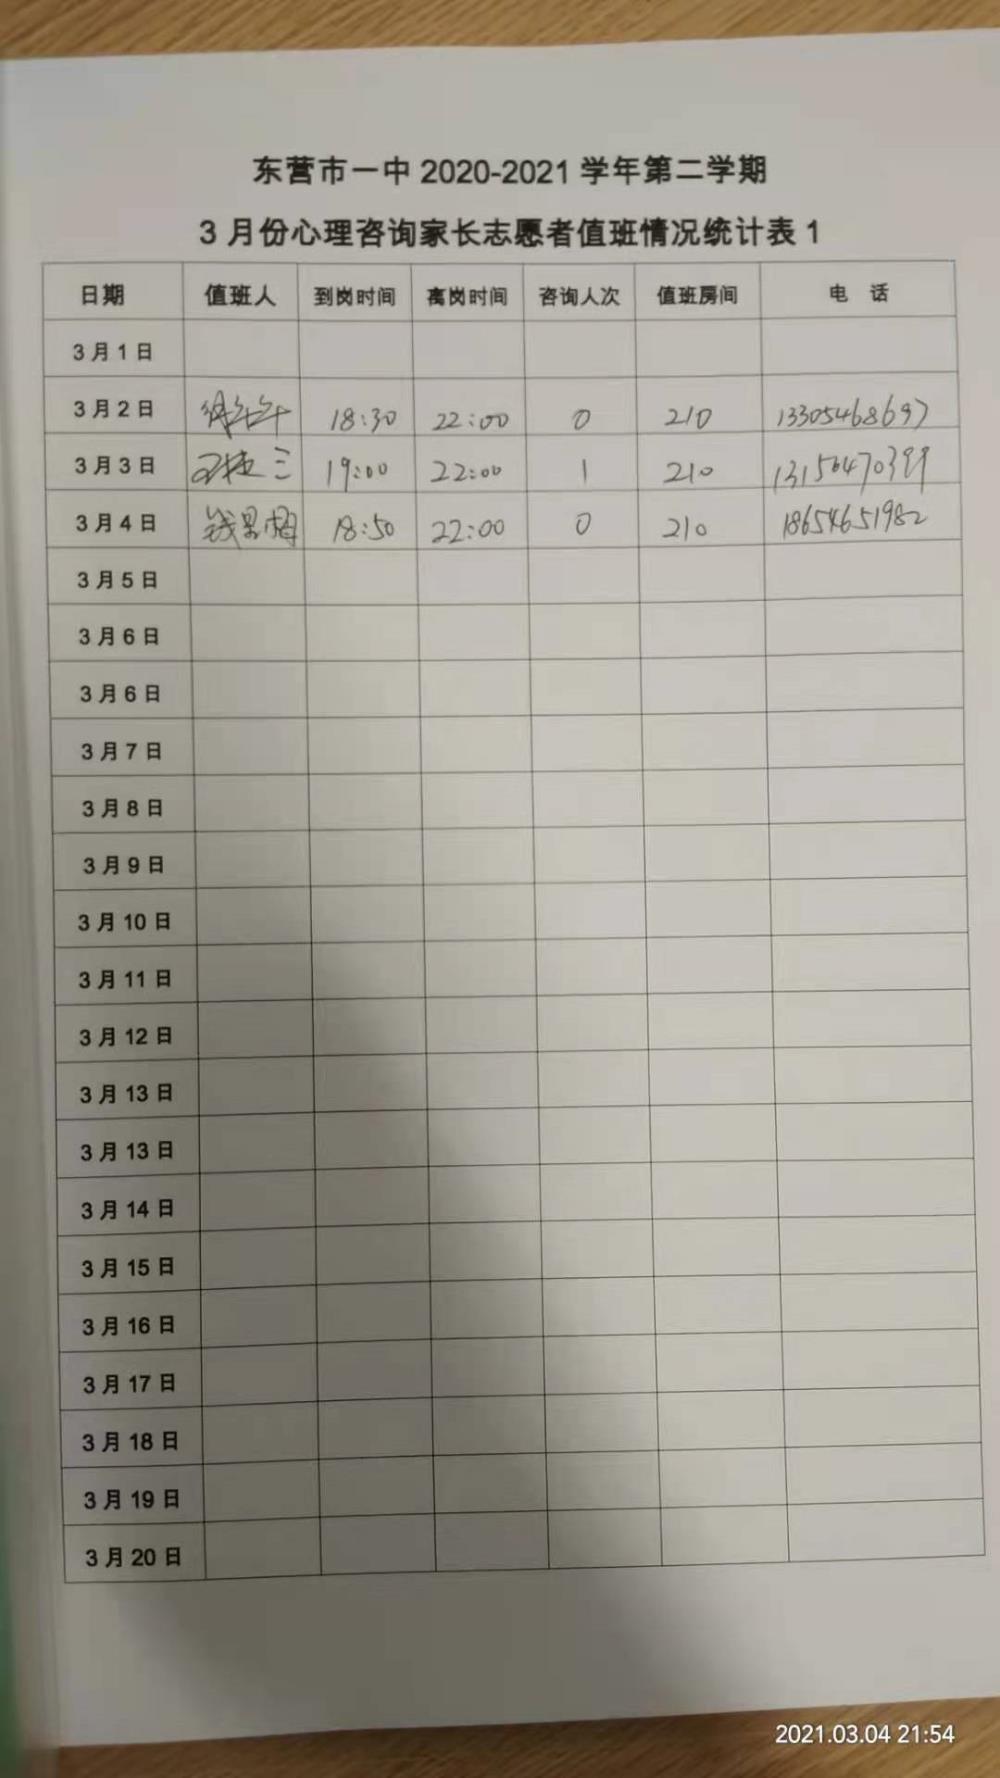 东营市一中 2020-2021 学年第二学期
3 月份心理咨询家长志愿者值班情况统计表 1
日期 值班人 到岗时间 离岗时间 咨询人次 值班房间 电 话
3 月 1 日
3 月 2 日 18:30 22:00 0 210 13305468697
3 月 3 日 三 19:00 22:00 1 210
3 月 4 日 钱 18:50 22:00 0 210 18654651982
3 月 5 日
3 月 6 日
3 月 6 日
3 月 7 日
3 月 8 日
3 月 9 日
3 月 10 日
3 月 11 日
3 月 12 日
3 月 13 日
3 月 13 日
3 月 14 日
3 月 15 日
3 月 16 日
3 月 17 日
3 月 18 日
3 月 19 日
3 月 20 日
2021.03.04 21:54